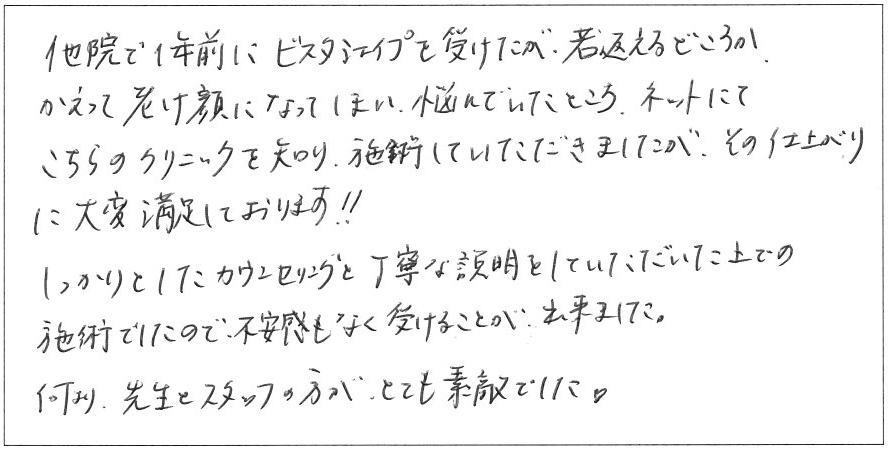 他院で1年前にビスタシェイプを受けたが、若返えるどころか、
かえって老け顔になってしまい、悩んでいたところ、ネットにて
こちらのクリニックを知り、施術していただきましたが、その仕上がり
に大変満足しております!!
しっかりとしたカウンセリングと丁寧な説明をしていただいた上での
施術でしたので、不安感もなく受けることが、出来ました。
何より、先生とスタッフの方が、とても素敵でした。